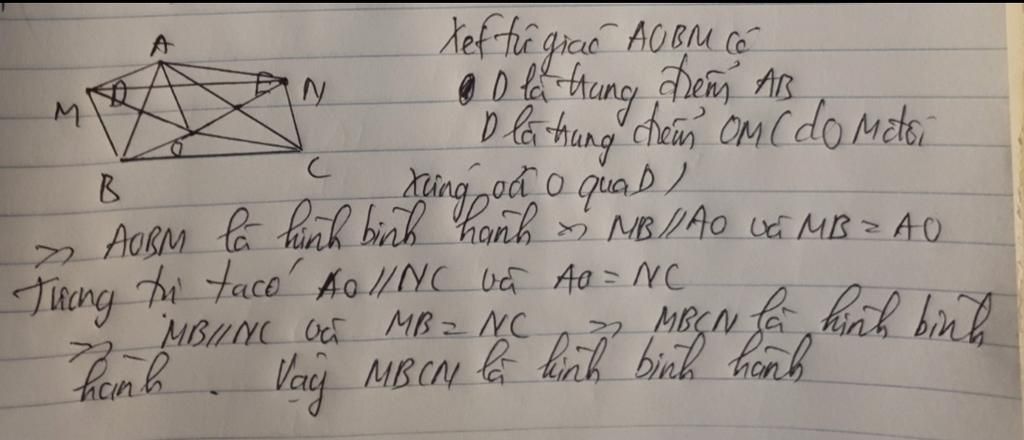 A
M
D
E
N
O
B
C
Xét tứ giác AOBM có
D là trung điểm AB
D là trung điểm OM (do M đối
xứng với O qua D)
=> AOBM là hình bình hành => MB//AO và MB = AO
Tương tự ta có AO//NC và AO = NC
=> MB//NC và MB = NC => MBCN là hình bình
hành. Vậy MBCN là hình bình hành